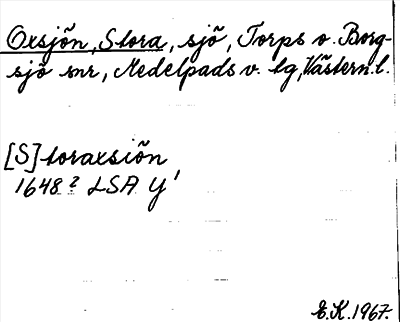 Oxsjön, Stora, sjö, Torps o. Borg-
sjö snr, Medelpads v. tg, Västern.l.
[S]toraxsiön
1648? LSA Y'
E.K.1967.